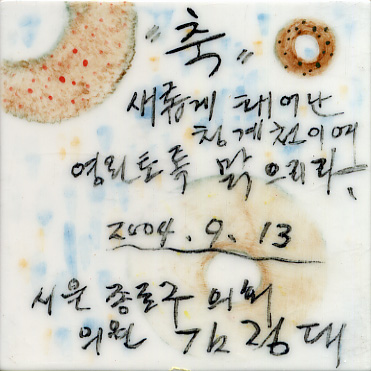 "축"
새롭게 태어난
청계천이여
영원토록 맑으리라!
2004. 9. 13
서울 종로구 의회
의원 김정대